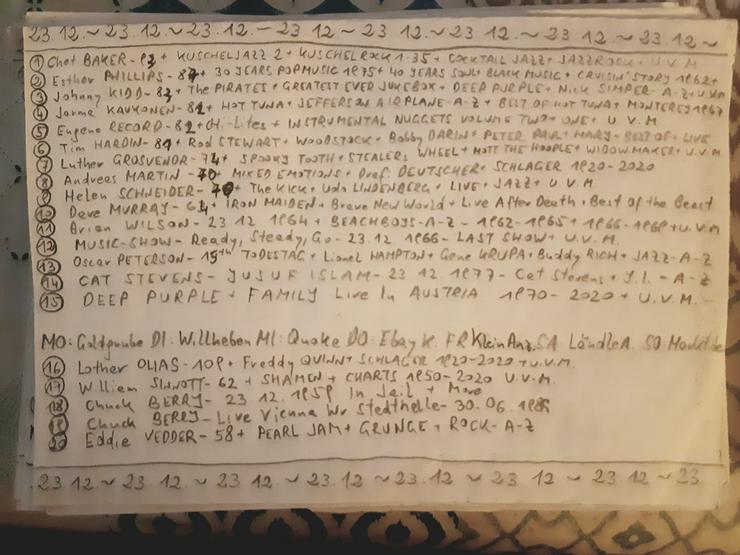 23.12.~23.12.~23.12.~23 12.~23 12~23 12.~23.12.~23.12.~
① Chet BAKER- 93 + KUSCHELJAZZ 2 + KUSCHELROCK 1-35 + COCKTAIL JAZZ + JAZZROCK + U.V.M
② Esther PHILLIPS- 87 + 30 YEARS POPMUSIC 1975 + 40 YEARS SOUL BLACK MUSIC + CRUISIN' STORY 1962 +
③ Johnny KIDD- 87 + The PIRATES + GREATEST EVER JUKEBOX + DEEP PURPLE + Nick SIMPER- A-Z + U.V.M
④ Jorma KAUKONEN- 82 + HOT TUNA + JEFFERSON AIRPLANE- A-Z + BEST OF HOT TUNA + MONTEREY 1967
⑤ Eugene RECORD- 82 + CHi-Lites + INSTRUMENTAL NUGGETS VOLUME TWO + ONE + U.V.M
⑥ Tim HARDIN- 81 + Rod STEWART + WOODSTOCK + Bobby DARIN + PETER, PAUL + MARY- BEST OF + LIVE
⑦ Luther GROSVENOR- 74 + SPOOKY TOOTH + STEALERS WHEEL + MOTT THE HOOPLE + WIDOWMAKER + U.V.M
⑧ Andreas MARTIN- 70 + MIXED EMOTIONS + Draf. DEUTSCHER + SCHLAGER 1920-2020
⑨ Helen SCHNEIDER- 70 + The KICK + Udo LINDENBERG + LIVE + JAZZ + U.V.M.
⑩ Dave MURRAY- 64 + IRON MAIDEN + Brave New World + Live After Death + Best Of the Beast
⑪ Brian WILSON- 23 12 1964 + BEACHBOYS- A-Z- 1962-1965 + 1966-1969 + U.V.M
⑫ MUSIC-SHOW- Ready, Steady, Go- 23.12 1966- LAST SHOW + U.V.M.
⑬ Oscar PETERSON- 15th TODESTAG + Lionel HAMPTON + Gene KRUPA + Buddy RICH + JAZZ- A-Z
⑭ CAT STEVENS- YUSUF ISLAM- 23 12 1977- Cat Stevens + Y.I.- A-Z
⑮ DEEP PURPLE + FAMILY Live In AUSTRIA 1970-2020 + U.V.M.
MO: Goldgrube DI: Willhaben MI: Quoke DO: Ebay K. FR Klein Anz. SA LändleA. SO Markt.de
⑯ Lothar OLIAS- 109 + Freddy QUINN + SCHLAGER 1920-2020 + U.V.M.
⑰ William SINNOTT- 62 + SHAMEN + CHARTS 1950-2020 U.V.M.
⑱ Chuck BERRY- 23 12. 1959 In Jail + More
Chuck BERRY- Live Vienna Wr Stadthalle- 30.06.
⑳ Eddie VEDDER- 58 + PEARL JAM + GRUNGE + ROCK- A-Z
23.12.~23.12.~23.12.~23.12~23.12~23 12~23 12~23.